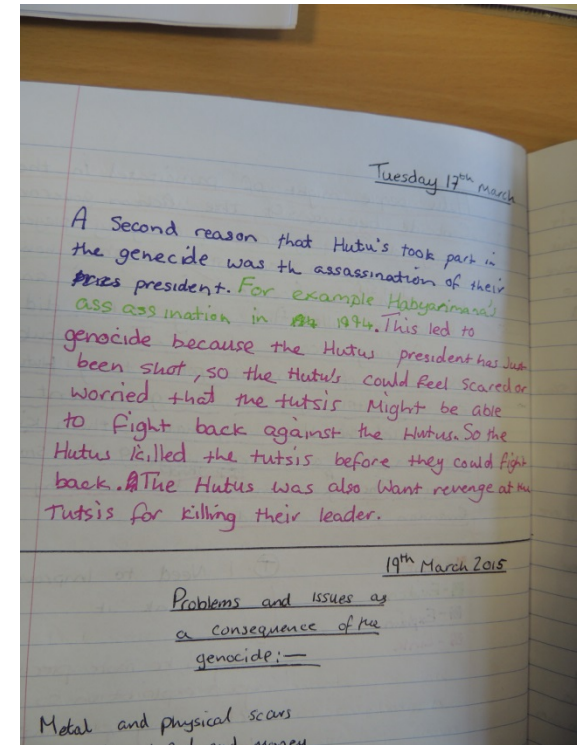 Tuesday 17th March
A Second reason that Hutu's took part in
the genecide was th assassination of their
president. For example Habyarimana's
ass ass ination in 1994. This led to
genocide because the Hutus president has Just
been shot, so the Hutu's could feel scared or
worried that the tutsis Might be able
to fight back against the Hutus. So the
Hutus killed the tutsis before they could fight
back. The Hutus was also want revenge at the
Tutsis for killing their leader.
19th March 2015
Problems and issues as
a consequence of the
genocide:—
Metal and physical scars
and money